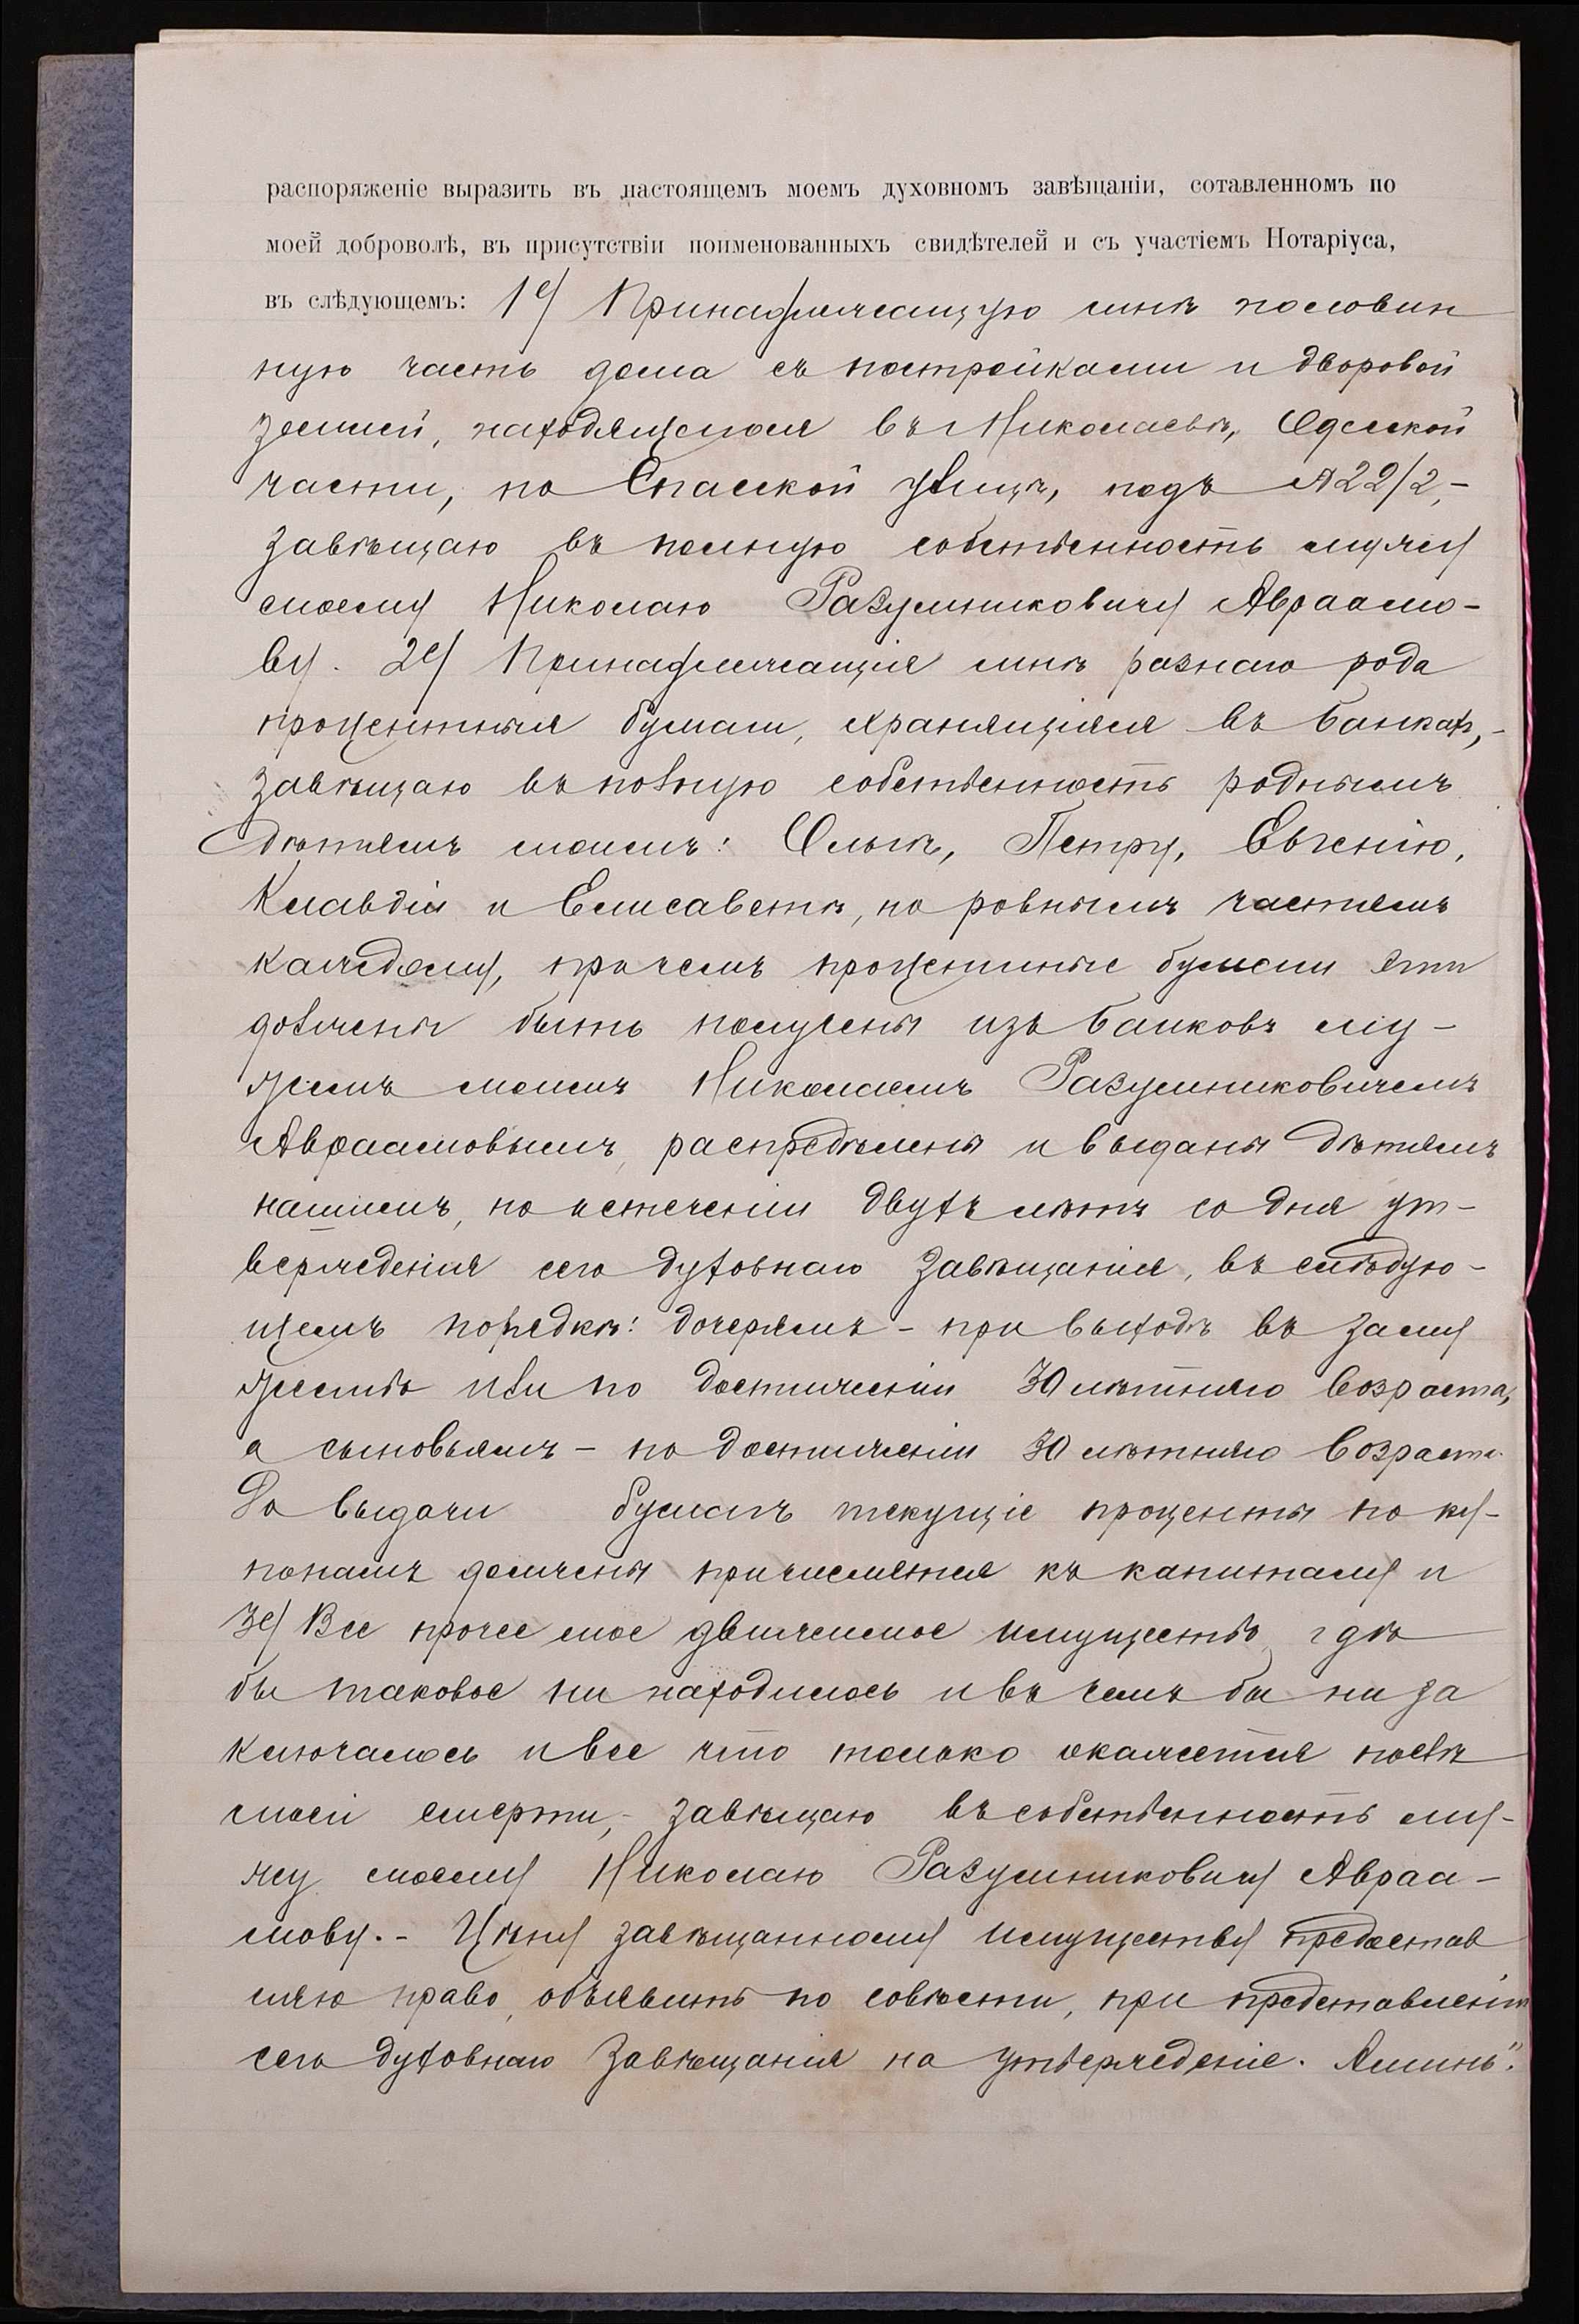 распоряженіе выразить въ настоящемъ моемъ духовномъ завѣщаніи, сотавленномъ по
моей доброволѣ, въ присутствіи поименованныхъ свидѣтелей и съ участіемъ Нотаріуса,
въ слѣдующемъ: 1е/ Принадлежащую мнѣ половин
ную часть дома съ постройками и дворовой
землей, находящегося въ Николаевѣ, Одесской
части, по Спасской улицѣ, подъ № 22/2,-
завѣщаю въ полную собственность мужу
моему Николаю Разумниковичу Авраамо-
ву. 2е/ Принадлежащія мнѣ разнаго рода
процентныя бумаги, хранящіяся въ банкахъ,-
завѣщаю въ полную собственность роднымъ
дѣтямъ моимъ: Ольгѣ, Петру, Евгенію,
Клавдіи и Елисаветѣ, по ровнымъ частямъ
каждому, причемъ процентные бумаги эти
должны быть получены изъ банковъ му-
жемъ моимъ Николаемъ Разумниковичемъ
Авраамовымъ, распредѣлены и выданы дѣтямъ
нашимъ, по истеченіи двухъ лѣтъ со дня ут-
вержденія сего духовнаго завѣщанія, въ слѣдую-
щемъ порядкѣ: дочерямъ - при выходѣ въ заму
жество или по достиженіи 30 лѣтняго возраста,
а сыновьямъ - по достиженіи 30 лѣтняго возраста.
До выдачи бумагъ текущіе проценты по ку-
понамъ должны причислятся къ капиталу и
3е/ Все прочее мое движимое имущество, гдѣ
бы таковое ни находилось и въ чемъ бы ни за
ключалось и все что только окажется послѣ
моей смерти,- завѣщаю въ собственность му-
жу моему Николаю Разумниковичу Авраа-
мову.- Цѣну завѣщанному имуществу предостав
ляю право, объявить по совѣсти, при представленіи
сего духовнаго завѣщанія на утвержденіе. Аминь".